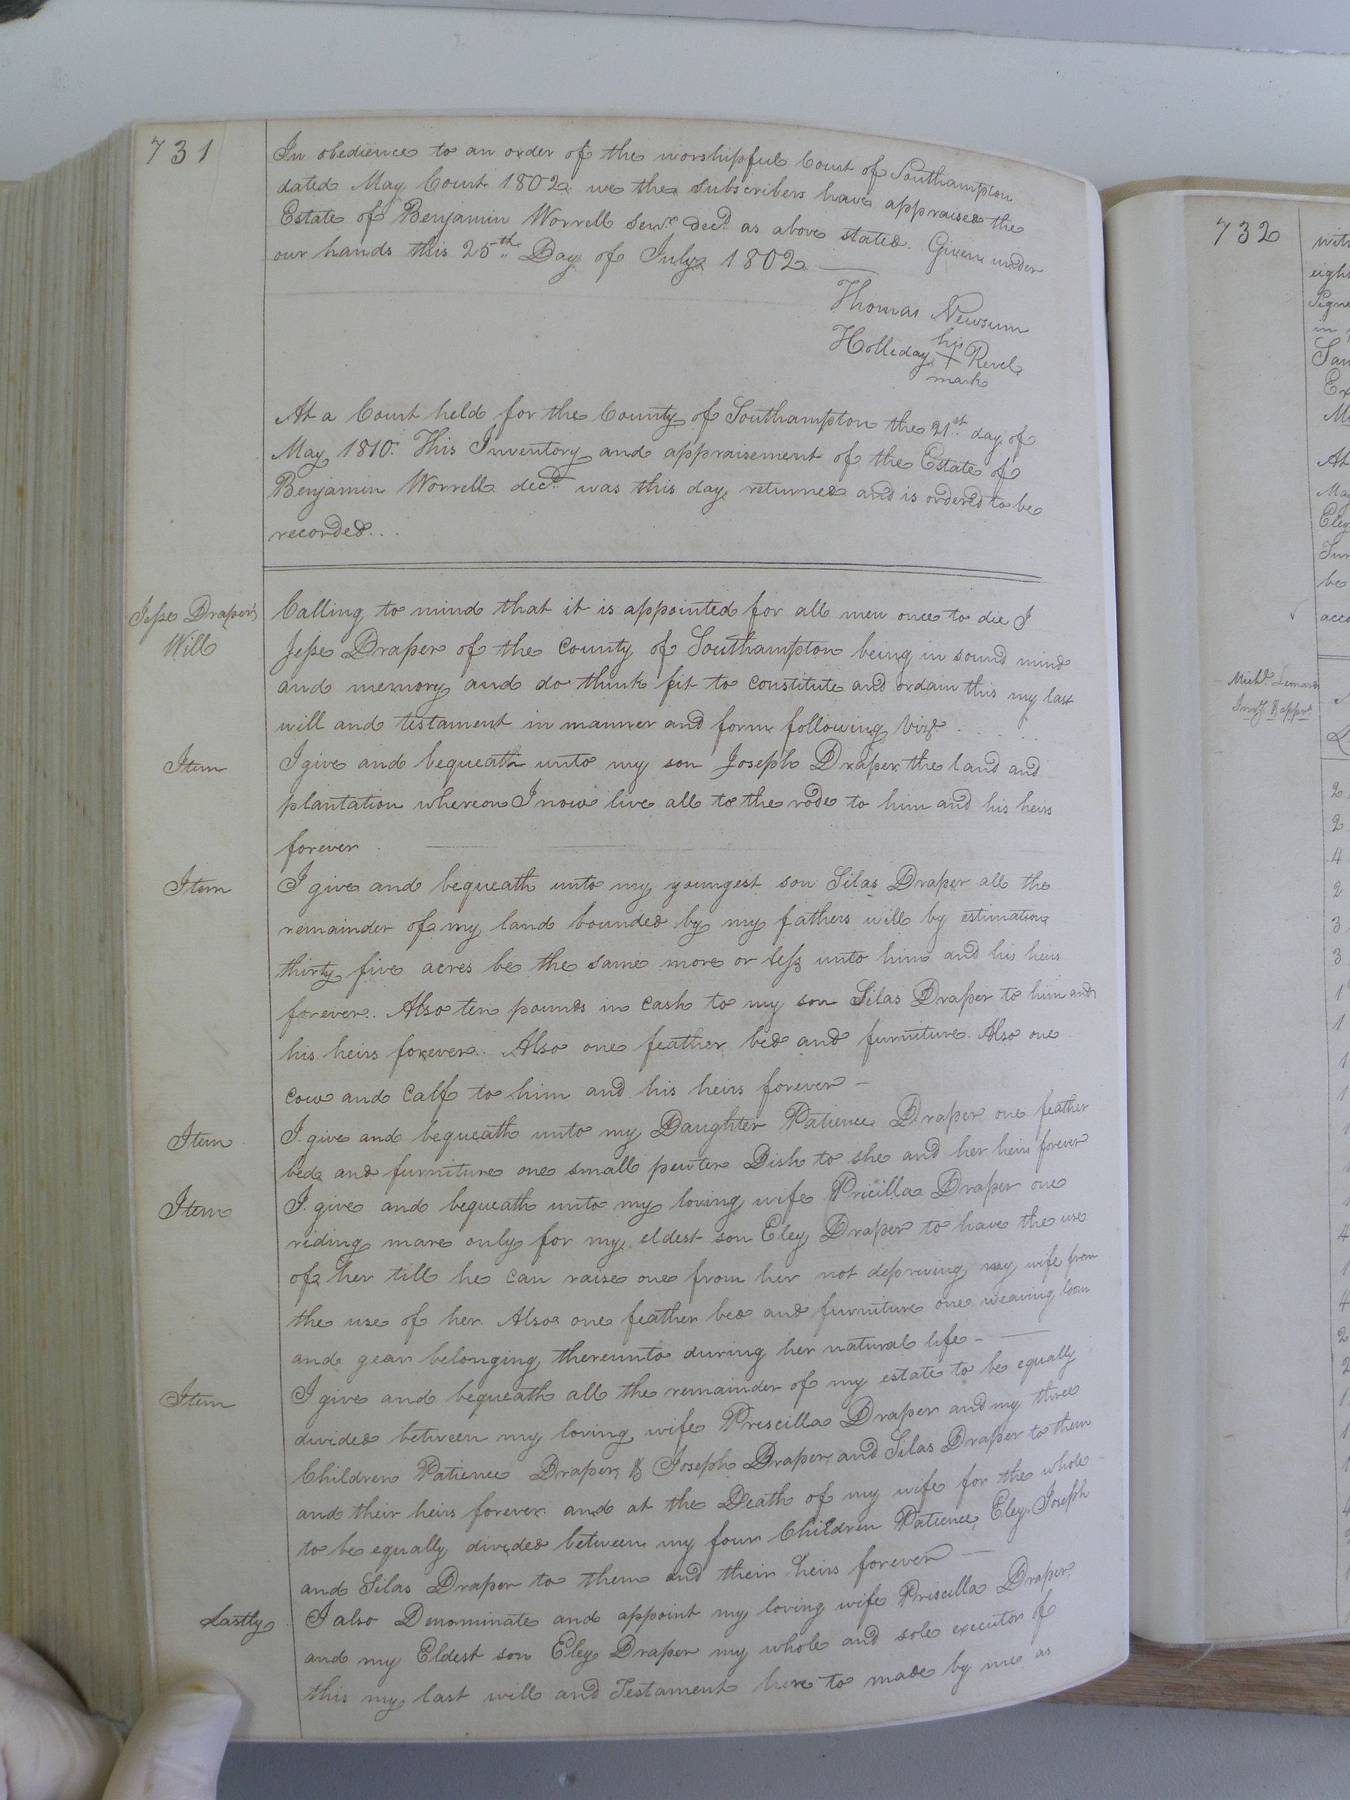 731
In obedience to an order of the worshipful Court of Southampton
dated May Court 1802 we the subscribers have appraised the
Estate of Benjamin Worrell Senr. decd. as above stated. Given under
our hands this 25th Day of July 1802
Thomas Newsum
his
Holliday X Revel
mark
At a Court held for the County of Southampton the 21st day of
May 1810. This Inventory and appraisement of the Estate of
Benjamin Worrell decd. was this day returned and is ordered to be
recorded...
Jesse Drapers
Will
Calling to mind that it is appointed for all men once to die I
Jesse Draper of the County of Southampton being in sound mind
and memory and do think fit to constitute and ordain this my last
will and testament in manner and form following Vizt.
Item
I give and bequeath unto my son Joseph Draper the land and
plantation whereon I now live all to the rode to him and his heirs
forever
Item
I give and bequeath unto my youngest son Silas Draper all the
remainder of my land bounded by my fathers will by estimation
thirty five acres be the same more or less unto him and his heirs
forever. Also ten pounds in cash to my son Silas Draper to him and
his heirs forever. Also one feather bed and furniture. Also one
cow and calf to him and his heirs forever —
Item
I give and bequeath unto my Daughter Patience Draper one feather
bed and furniture one small pewter Dish to she and her heirs forever
Item
I give and bequeath unto my loving wife Pricilla Draper one
riding mare only for my eldest son Eley Draper to have the use
of her till he can raise one from her not depriving my wife from
the use of her Also one feather bed and furniture one weaving loom
and gear belonging thereunto during her natural life —
Item
I give and bequeath all the remainder of my estate to be equally
divided between my loving wife Priscilla Draper and my three
Children Patience Draper, & Joseph Draper, and Silas Draper to them
and their heirs forever and at the Death of my wife for the whole
to be equally divided between my four Children Patience, Eley Joseph
and Silas Draper to them and their heirs forever —
Lastly
I also Denominate and appoint my loving wife Priscilla Draper
and my Eldest son Eley Draper my whole and sole executor of
this my last will and Testament here to made by me as
732